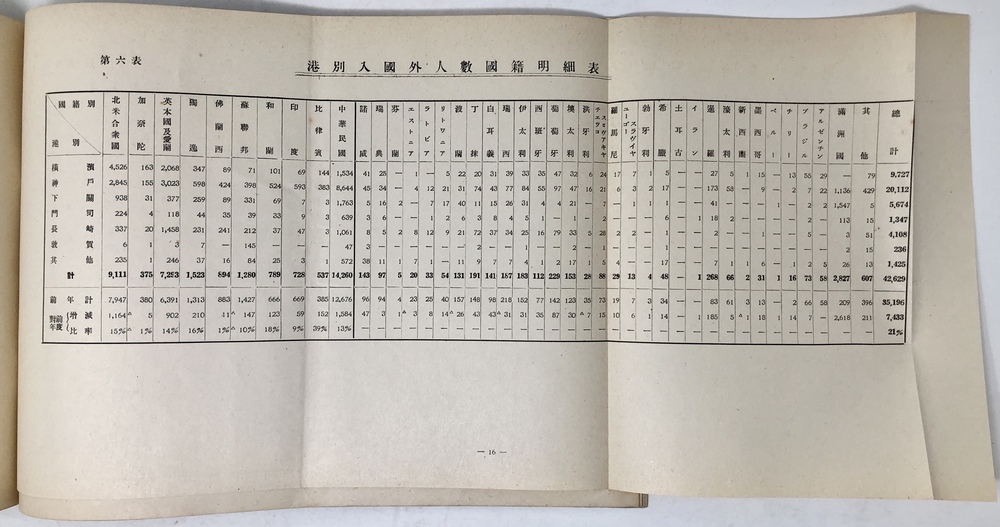 第六表
港別入國外人數國籍明細表
國籍別 港別 北米合衆國 加奈陀 英本國及愛蘭 獨逸 佛蘭西 蘇聯邦 和蘭 印度 比律賓 中華民國 諾威 瑞典 芬蘭 エストニア ラトビア リトワニア 波蘭 丁抹 白耳義 瑞西 伊太利 西班牙 葡萄牙 墺太利 洪牙利 チエツコスロヴアキヤ 羅馬尼 ユーゴースラヴイヤ 勃牙利 希臘 土耳古 イラン 暹羅 濠太利 新西蘭 墨西哥 ペルー チリー ブラジル アルゼンチン 滿洲國 其他 總計
橫濱 4,526 163 2,068 347 89 71 101 69 144 1,534 41 25 — 1 — 5 22 20 31 39 33 6 47 32 6 24 17 7 1 5 — — 27 5 1 15 — 13 55 29 — 79 9,727
神戶 2,845 155 3,023 598 424 398 524 593 383 8,644 45 34 — 4 12 21 31 74 43 77 84 55 97 47 16 21 6 3 2 17 — — 173 58 — 9 — 2 7 22 1,136 429 20,112
下關 938 31 377 259 89 331 69 7 3 1,763 5 16 2 — 7 17 40 11 15 26 31 4 4 21
門司 224 4 118 44 35 39 33 9 3 639 3 6 — — 1 2 6 3 8 4 5 1 — 1 — 2
長崎 337 20 1,458 231 241 212 37 47 3 1,061 8 5 2 8 12 9 21 72 37 34 25 16 79 33 5 28
敦賀 6 1 3 7 — 145 — — — 47 3
其他 235 1 246 37 16 84 25 3 1 572 38 11
計 9,111 375 7,293 1,523 894 1,280 789 728 537 14,260 143 97 5 20 33 54 131 191 141 187 183 112 229 153 28 88 29 13 4 48 — 1 268 66 2 31 1 16 73 58 2,827 607 42,629
前年計 7,947 380 6,391 1,313 883 1,427 666 669 385 12,676 96 94 4 23 25 40 157 148 98 218 152 77 142 123 35 73 19 7 3 34 — — 83 61 3 13 — 2 66 58 209 396 35,196
對前年度 增減 1,164 △5 902 210 11 △147 123 59 152 1,584 47 3 1 △3 8 14 △26 43 43 △31 31 35 87 30 △7 15 10 6 1 14 — 1 185 5 △1 18 1 14 7 — 2,618 211 7,433
比率 15% △1% 14% 16% 1% △10% 18% 9% 39% 13% 21%
— 16 —